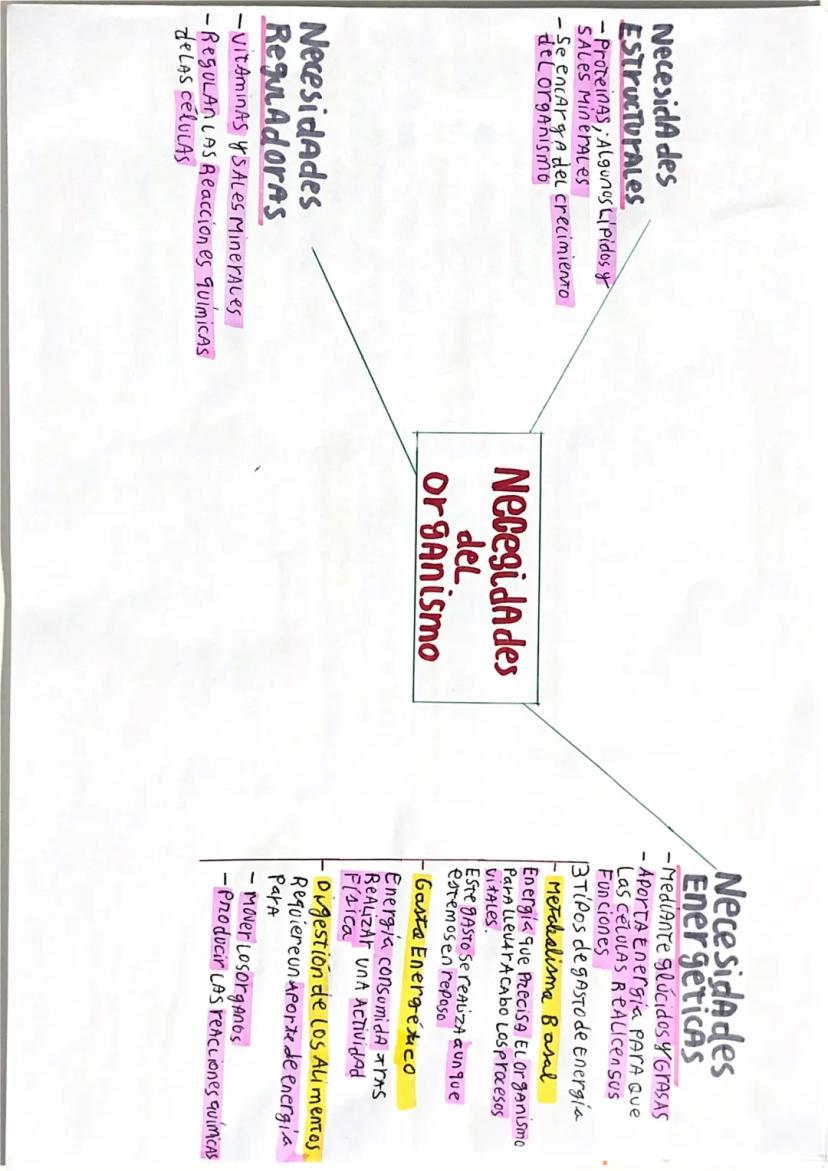 Necesidades
Estructurales
- Proteinas, Algunos Lípidos y
Sales Minerales
- Se encarga del crecimiento
del organismo
Necesidades
Energéticas
- Mediante glúcidos y grasas
- Aporta energía para que
Las células realicen sus
Funciones
3 Tipos de gasto de energía
- Metabolismo Basal
Energía que precisa el organismo
para llevar a cabo los procesos
vitales.
Este gasto se realiza aunque
estemos en reposo
- Gasto Energético
Energía consumida tras
Realizar una actividad
Física
- Digestión de los alimentos
Requiere un aporte de energía
para
- Mover los órganos
- Producir las reacciones químicas
Necesidades
del
organismo
Necesidades
Reguladoras
- Vitaminas y sales minerales
- Regulan las reacciones químicas
de las células